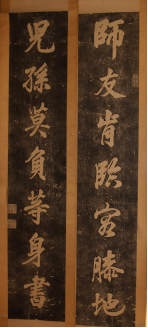 師友肯臨容膝地
兒孫莫負等身書